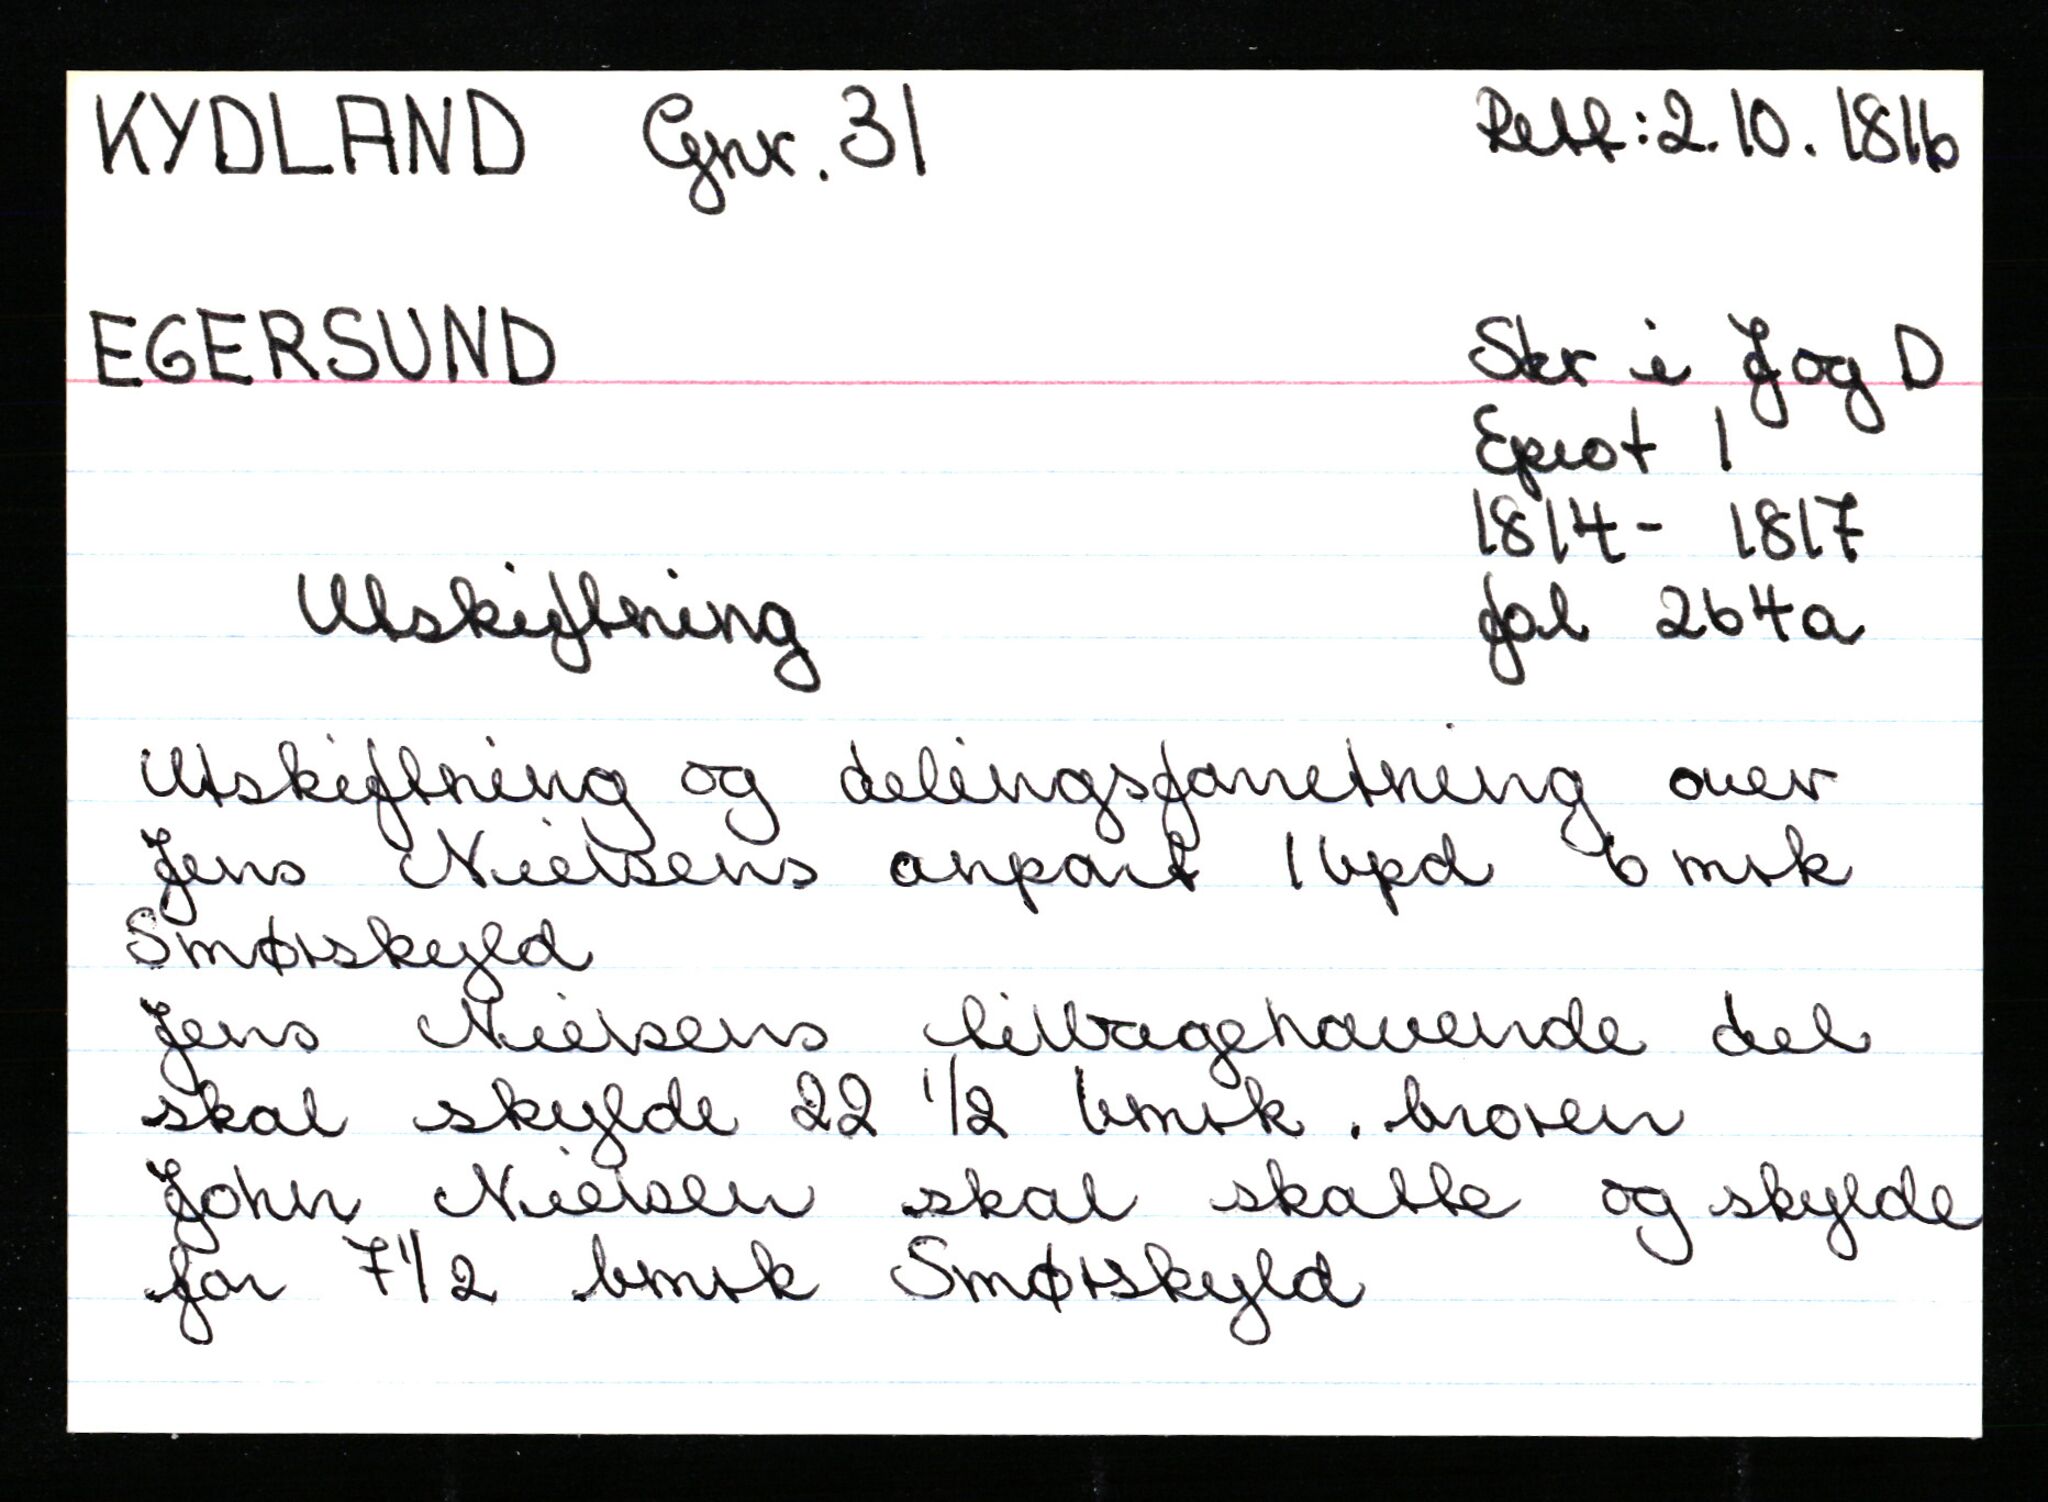 KYDLAND Gnr. 31 Rett: 2.10.1816
EGERSUND Skr i J og D
Eprot 1
1814 - 1817
Utskiftning fol 264a
Utskiftning og delingsforretning over
Jens Nielsens anpart 1 bpd 6 mrk
Smørskyld
Jens Nielsens tilbagehavende del
skal skylde 22 1/2 bmrk. broren
John Nielsen skal skatte og skylde
for 7 1/2 bmrk Smørskyld